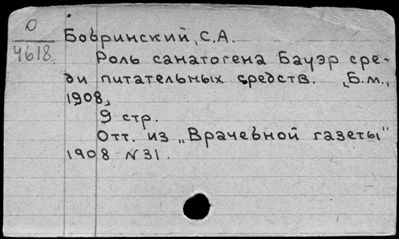 О
4618
Бобринский, С.А.
Роль санатогена Бауэр сре-
ди питательных средств. [Б.м.,
1908]
9 стр.
Отт. из „Врачебной газеты"
1908 N 31.